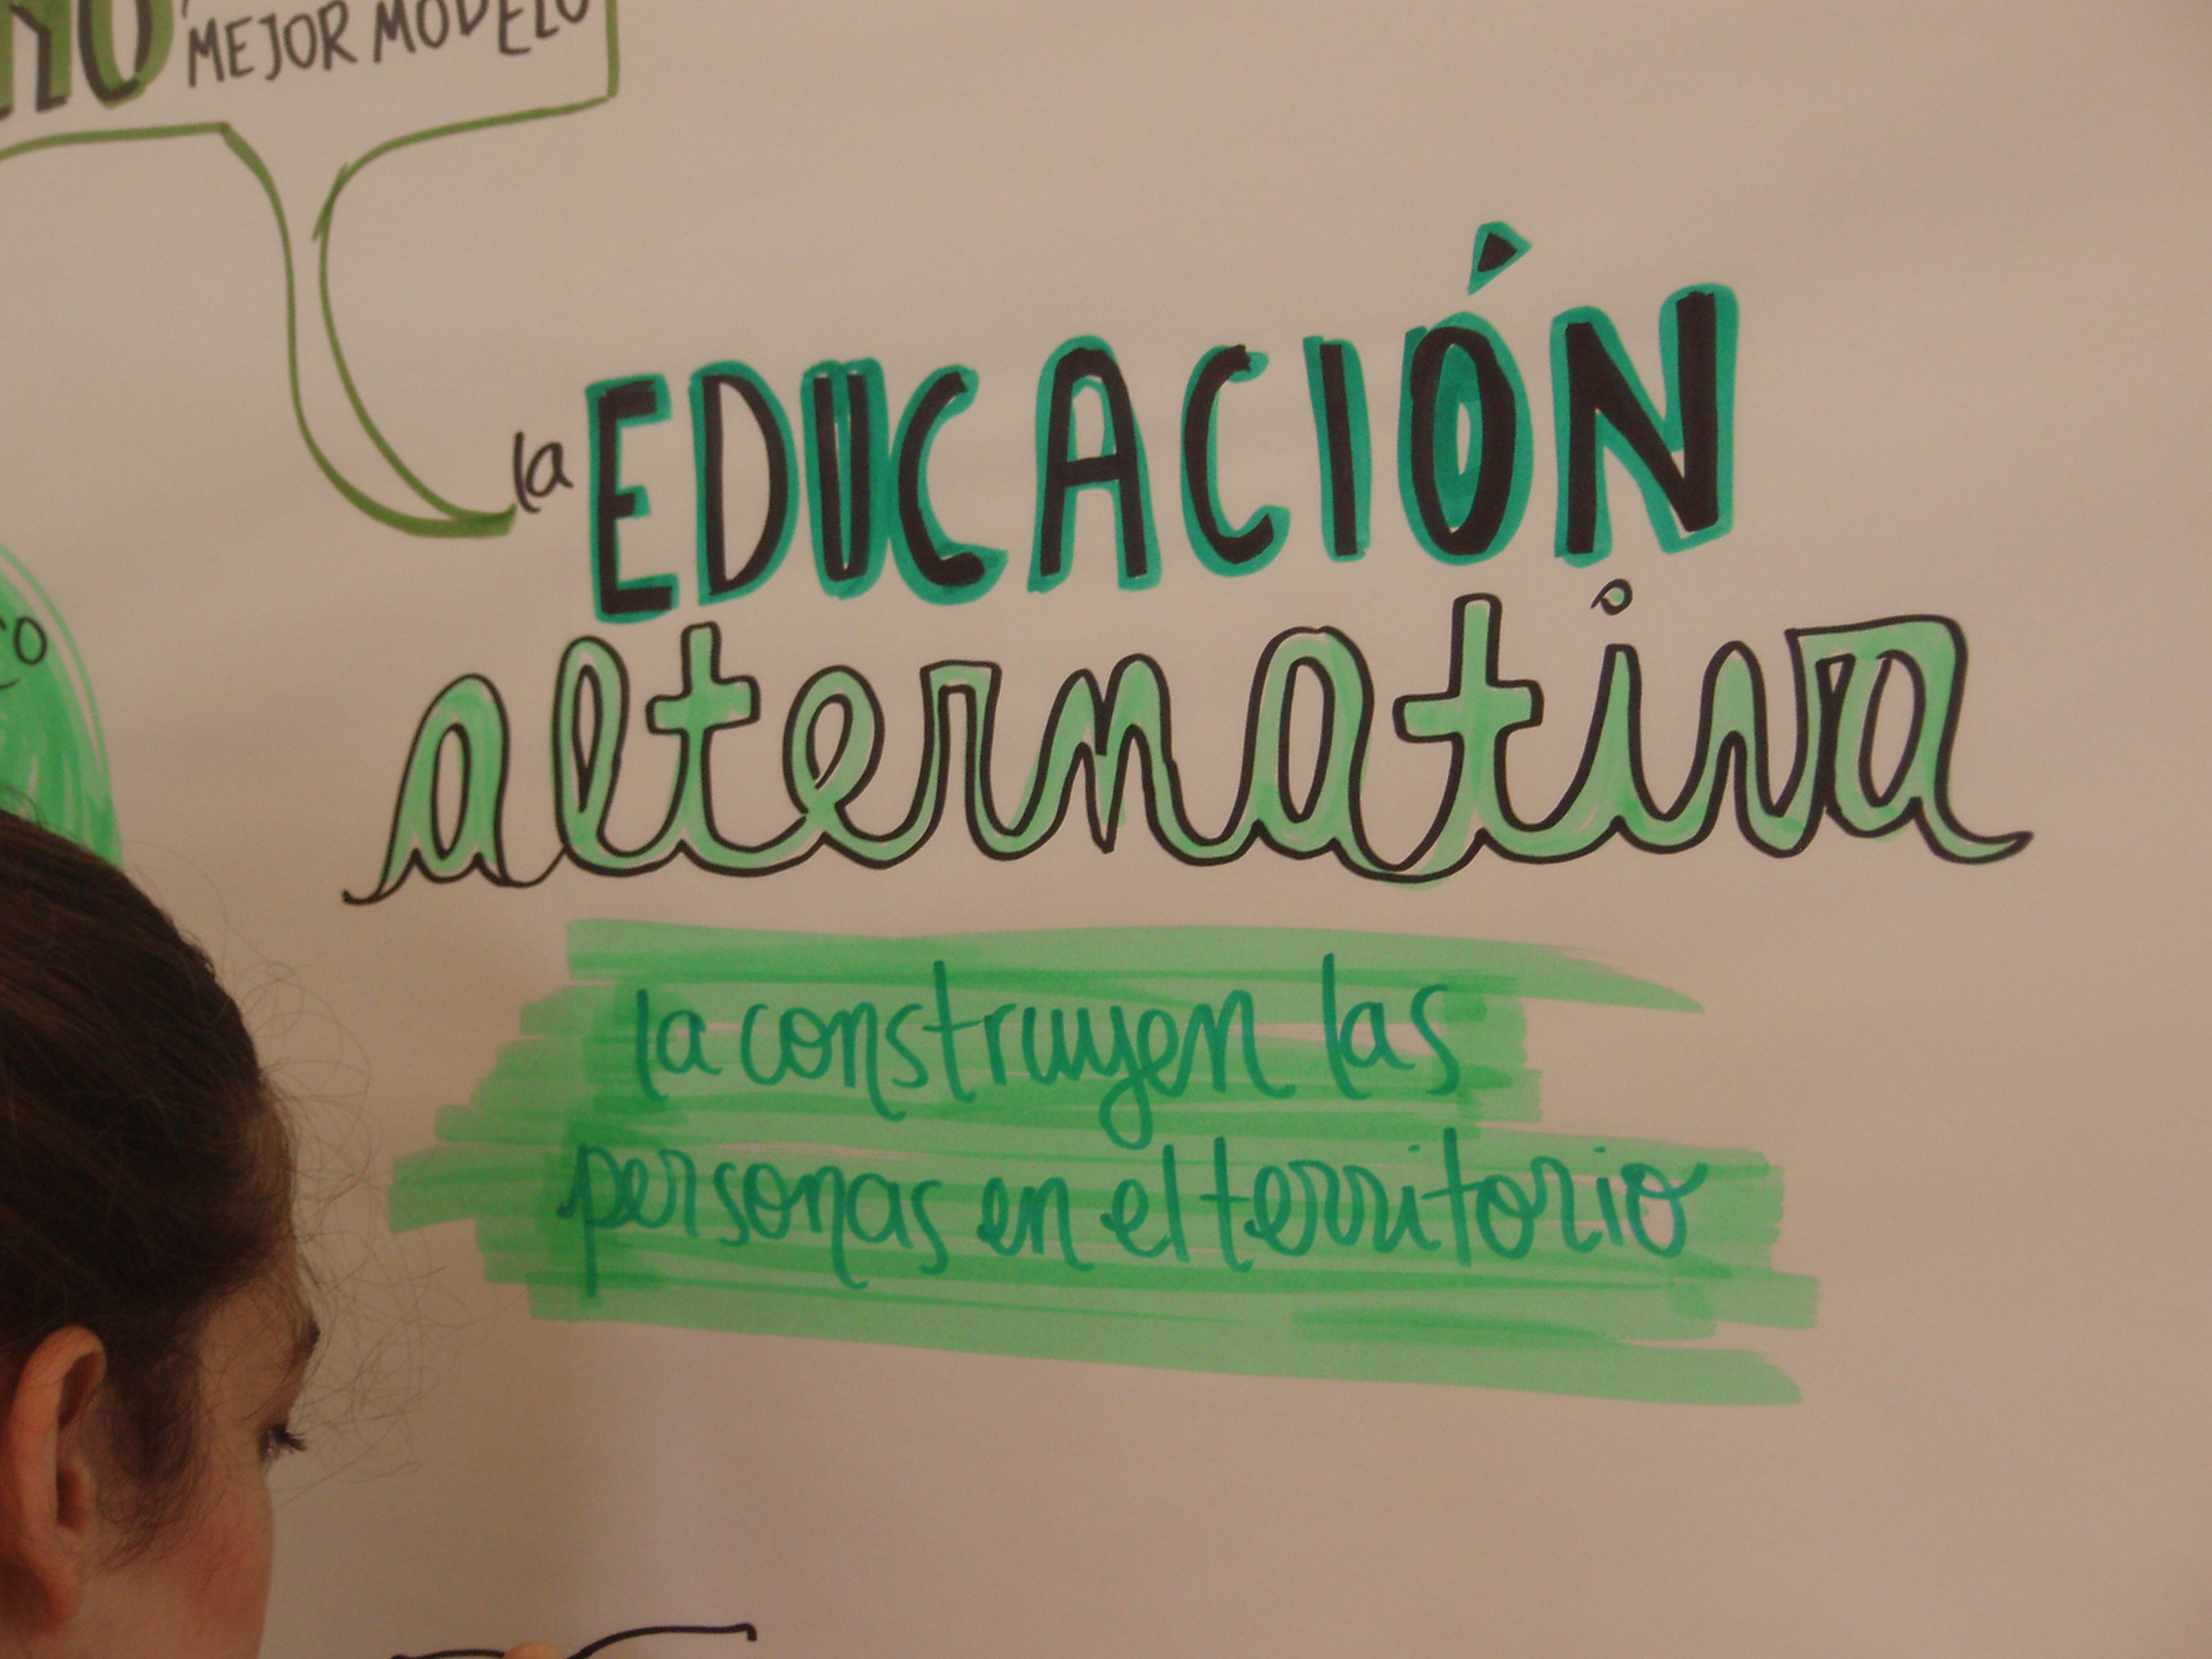 MEJOR MODELO
la EDUCACIÓN
alternativa
la construyen las
personas en el territorio